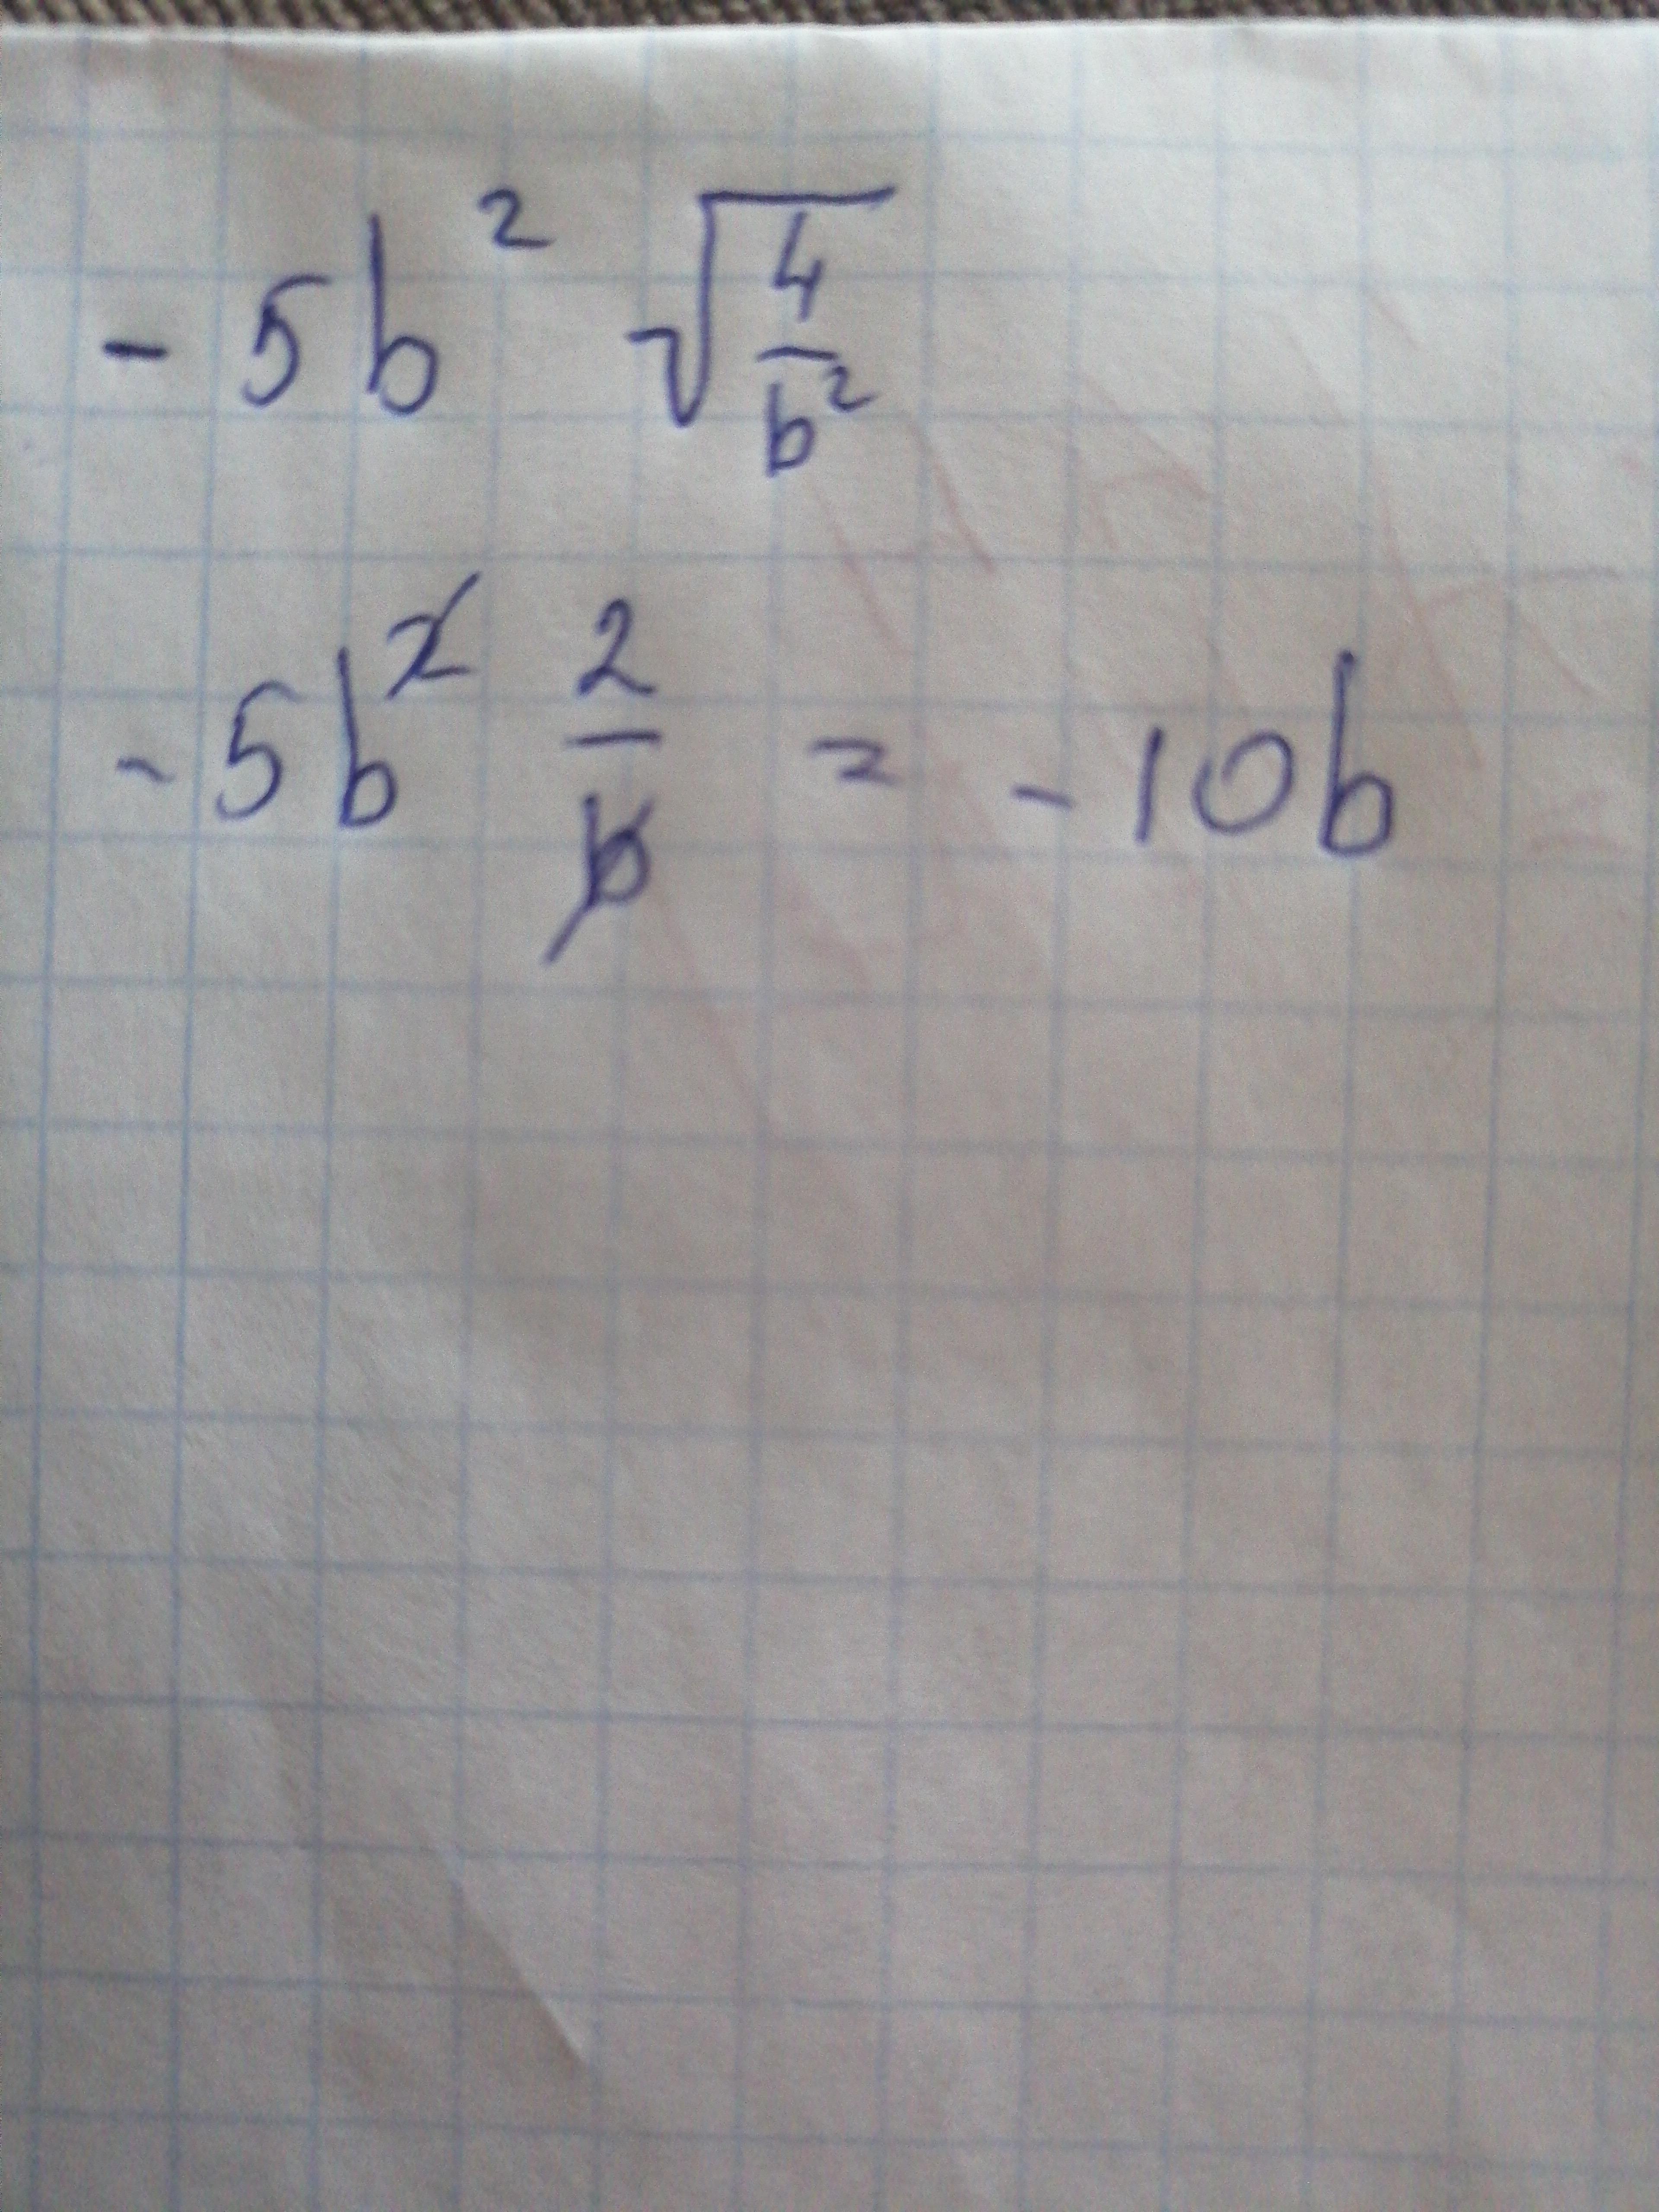 -5b² √(4/b²)
-5b² 2/b = -10b